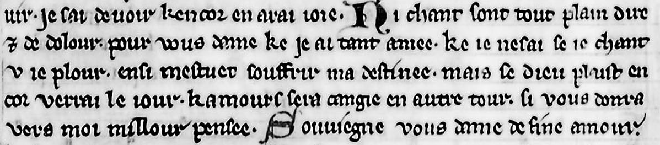 uir. je sai de uoir kencor en arai ioie. Mi chant sont tout plain dire
⁊ de dolour. pour vous dame ke je ai tant amee. ke ie ne sai se ie chant
v ie plour. ensi mestuet souffrir ma destinee. mais se dieu plaist en
cor verrai le iour. kamours sera cangie en autre tour. si vous donra
vers moi millour pensee. Souuiegne vous dame de fine amour.